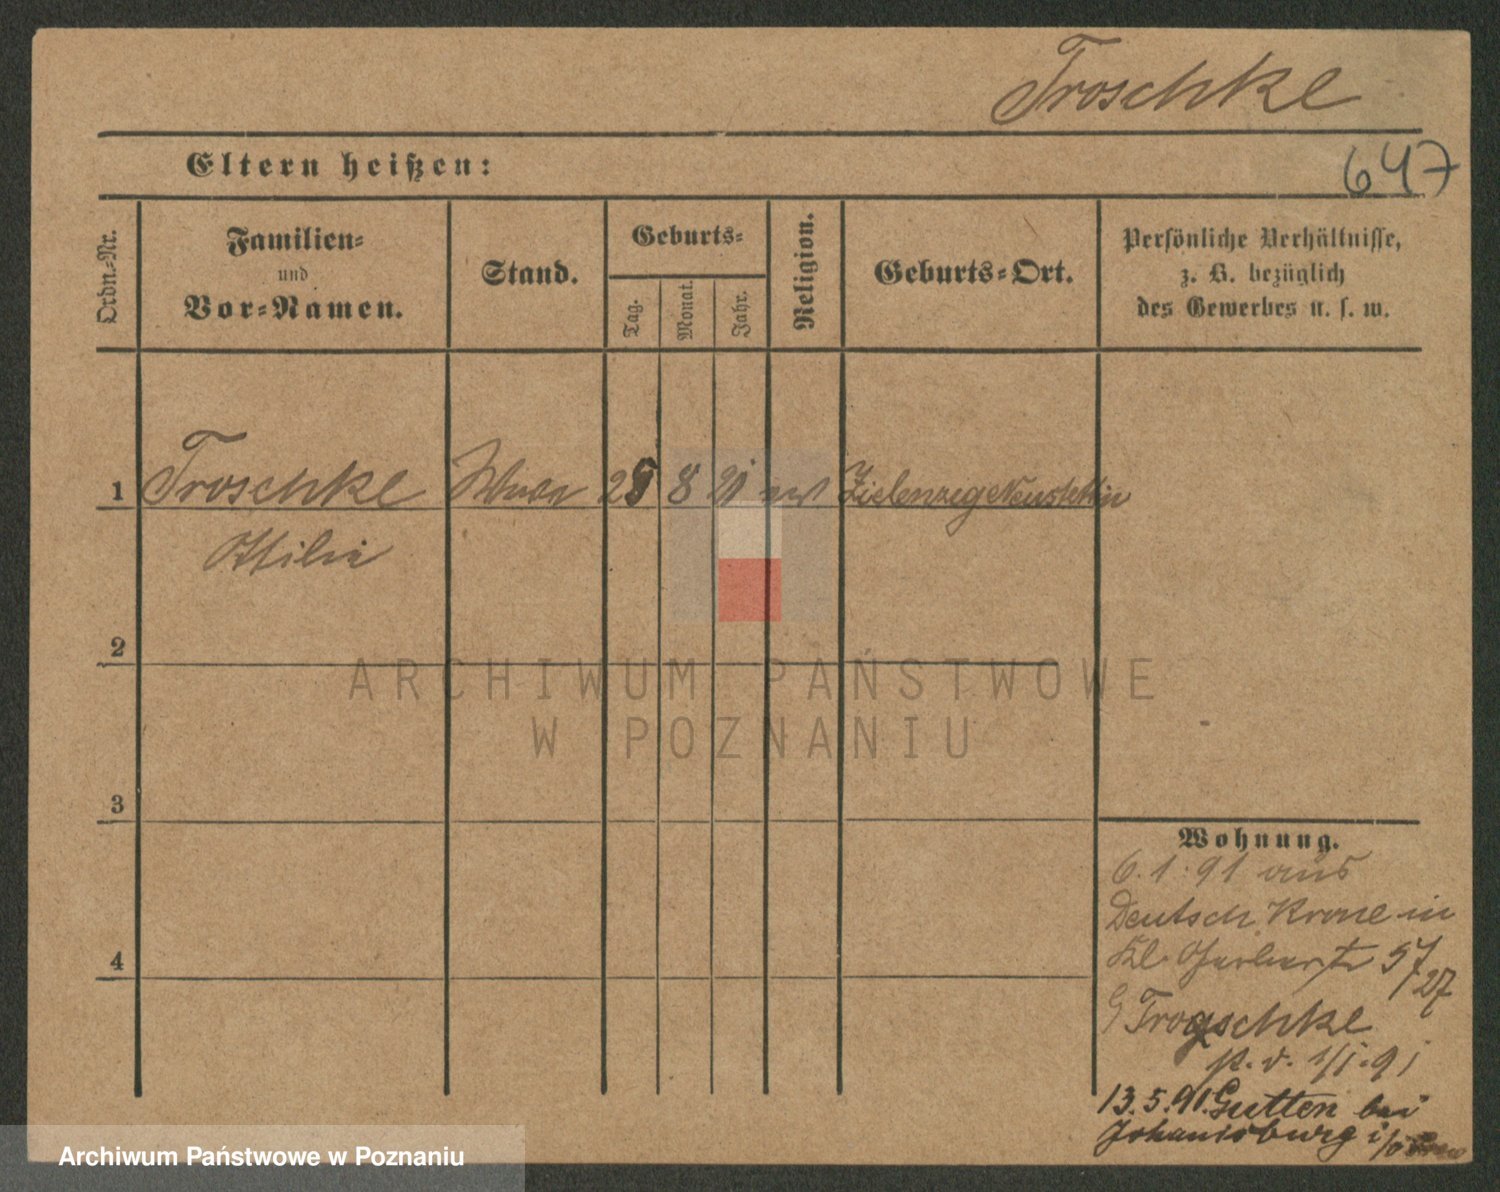 Troschke
Eltern heißen:
647
Ordn.-Nr.
Familien-
und
Vor-Namen.
Stand.
Geburts-
Tag.
Monat.
Jahr.
Religion.
Geburts-Ort.
Persönliche Verhältnisse,
z. B. bezüglich
des Gewerbes u. s. w.
1 Troschke 8 21 Zielenzig Neustettin
Ottilie
2
3
4
Wohnung.
6.1.91 aus
Deutsch Krone in
Kl. Gerberstr 57/27
Troschke
p. d. 1/1.91
13.5.91. Gutten bei
Johannisburg
ARCHIWUM PAŃSTWOWE
W POZNANIU
Archiwum Państwowe w Poznaniu